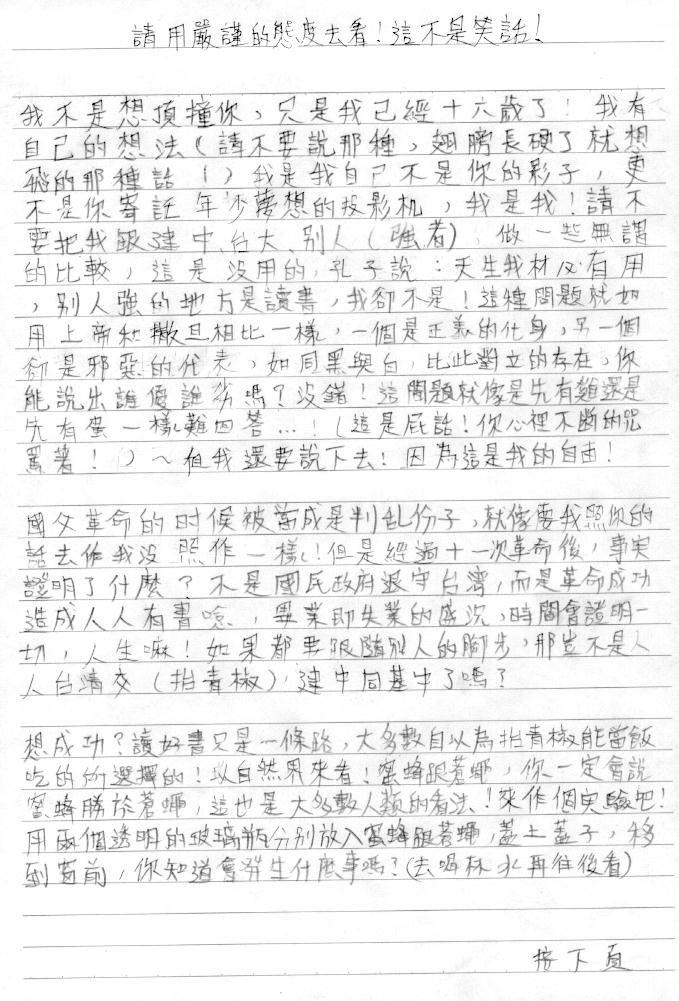 請用嚴謹的態度去看!這不是笑話!
我不是想頂撞你,只是我已經十六歲了!我有
自己的想法(請不要說那種,翅膀長硬了就想
飛的那種話!)我是我自己不是你的影子,更
不是你寄託年少夢想的投影机,我是我!請不
要把我跟建中、台大、別人(強者),做一些無謂
的比較,這是沒用的,孔子說:天生我材必有用
,別人強的地方是讀書,我卻不是!這種問題就如
用上帝和撒旦相比一樣,一個是正義的化身,另一個
卻是邪惡的代表,如同黑與白,比此對立的存在,你
能說出誰優誰劣嗎?沒錯!這問題就像是先有雞還是
先有蛋一樣難回答…!(這是屁話!你心裡不斷的咒
罵著!)~但我還要說下去!因為這是我的自由!
國父革命的时候被當成是判乱份子,就像要我照你的
話去作我沒照作一樣!但是經過十一次革命後,事实
證明了什麼?不是國民政府退守台濟,而是革命成功
造成人人有書唸,畢業即失業的盛況,時間會證明一
切,人生嘛!如果都要跟隨別人的腳步,那豈不是人
人台清交(抬青椒),建中同基中了嗎?
想成功?讀好書只是一條路,大多數自以為抬青椒能當飯
吃的所選擇的!以自然界來看!蜜蜂跟蒼蠅,你一定會說
蜜蜂勝於蒼蠅,這也是大多數人類的看法!來作個实驗吧!
用兩個透明的玻璃瓶分別放入蜜蜂跟蒼蠅,蓋上蓋子,移
到窗前,你知道會發生什麼事嗎?(去喝杯水再往後看)
接下頁